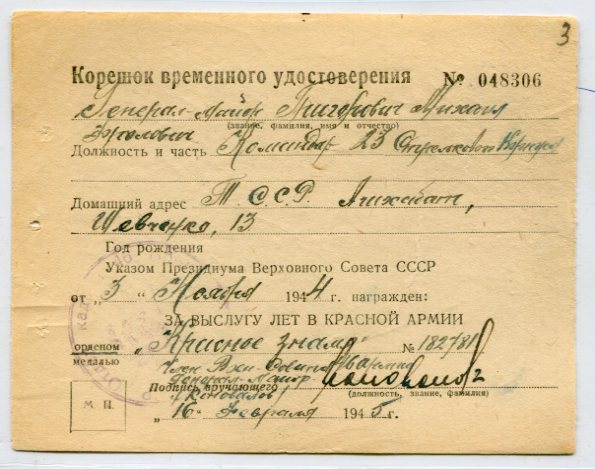 3
Корешок временного удостоверения № 048306
Генерал-майор Григорович Михаил
(звание, фамилия, имя и отчество)
Фролович
Должность и часть Командир 25 Стрелковой Корпуса
Домашний адрес Т С.С.Р. Ашхабат,
Шевченко, 13
Год рождения
Указом Президиума Верховного Совета СССР
от „3“ Ноября 1944 г. награжден:
ЗА ВЫСЛУГУ ЛЕТ В КРАСНОЙ АРМИИ
орденом „Красное знамя“ № 182781
медалью
Член
Генерал-Майор
Подпись вручающего
(должность, звание, фамилия)
/Коновалов/
М П.
„16“ Февраля 1945 г.